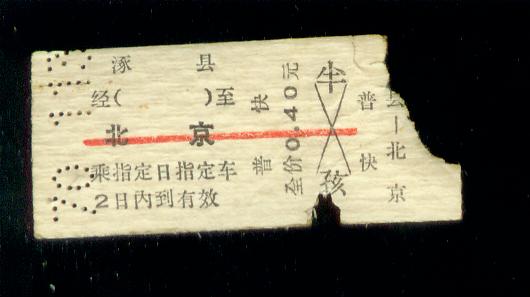 涿 县
经( )至
北 京
乘指定日指定车
2日内到有效
普 快
全价0.40元
半
孩
普 快
县—北京